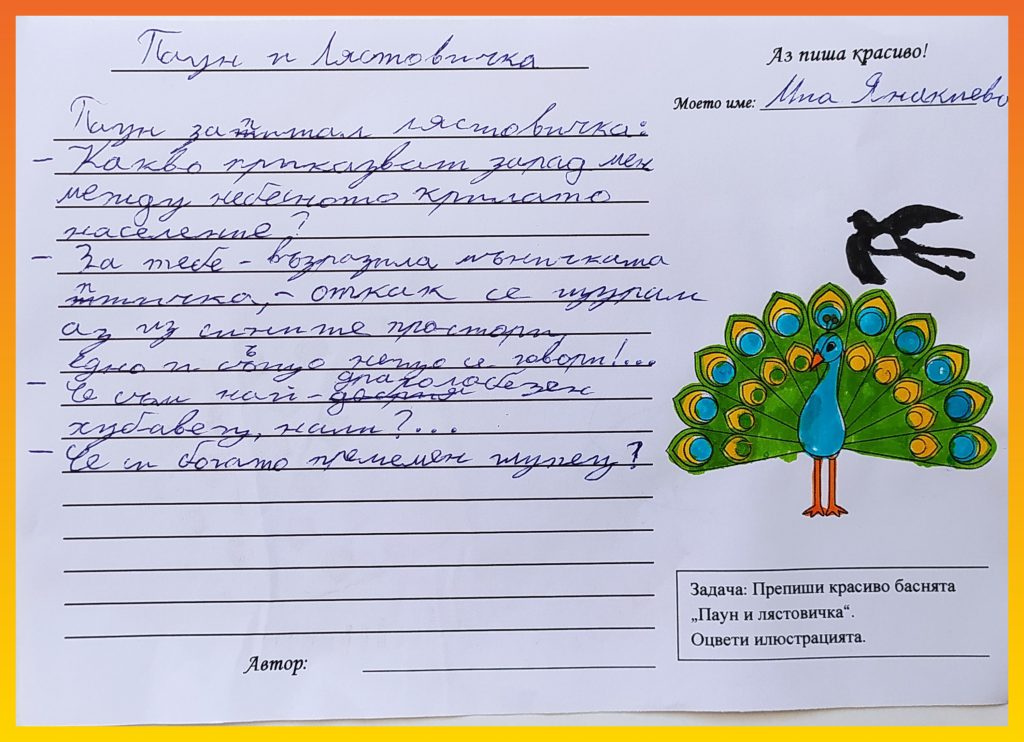 Паун и Лястовичка
Аз пиша красиво!
Моето име: Миа Янакиева
Паун запитал лястовичка:
– Какво приказват зарад мен
между небесното крилато
население?
– За тебе – възразила мъничката
птичка, – откак се щурам
аз из сините простори,
Едно и също нещо се говори!...
– Че съм най-драголюбезен
хубавец, нали?...
– Че си богато пременен глупец!
Задача: Препиши красиво баснята
„Паун и лястовичка“.
Оцвети илюстрацията.
Автор: